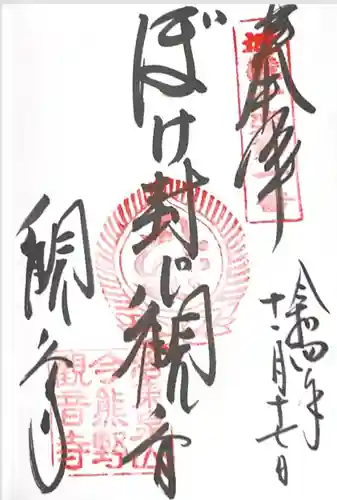 奉拝
令和四年
十一月十七日
ぼけ封じ観音
観音寺
今熊野
観音寺